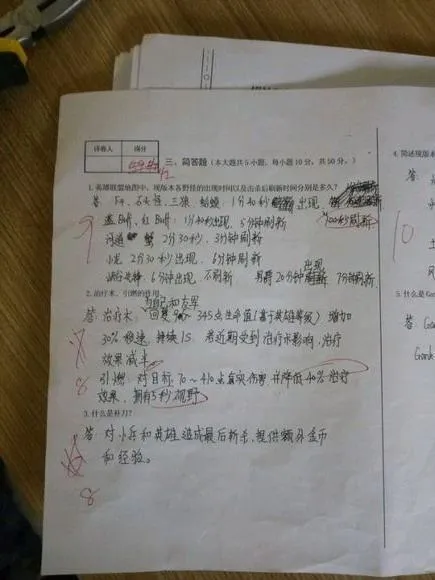 评卷人 得分
三、简答题（本大题共5小题，每小题10分，共50分。）
1.英雄联盟地图中，现版本各野怪的出现时间以及击杀后刷新时间分别是多久？
答 F4、石头怪、三狼、蛤蟆：1分40秒出现、
100秒刷新
蓝Buff、红Buff：1分40秒出现、5分钟刷新
河道蟹 2分30秒、3分钟刷新
小龙 2分30秒出现、6分钟刷新
峡谷先锋、6分钟出现、不刷新 男爵20分钟出现 7分钟刷新、
9
2.治疗术、引燃的作用
答 治疗术：为自己和友军回复 345点生命值(基于英雄等级) 增加
30%移速、持续1S 若近期受到治疗术影响，治疗
效果减半
引燃：对目标70~410点真实伤害 并降低40%治疗
效果、拥有5秒视野
8
3.什么是补刀？
答 对小兵和英雄造成最后斩杀，提供额外金币
和经验。
8
4.简述现版本
答
10
5.什么是Ga
答 Ga
Gank